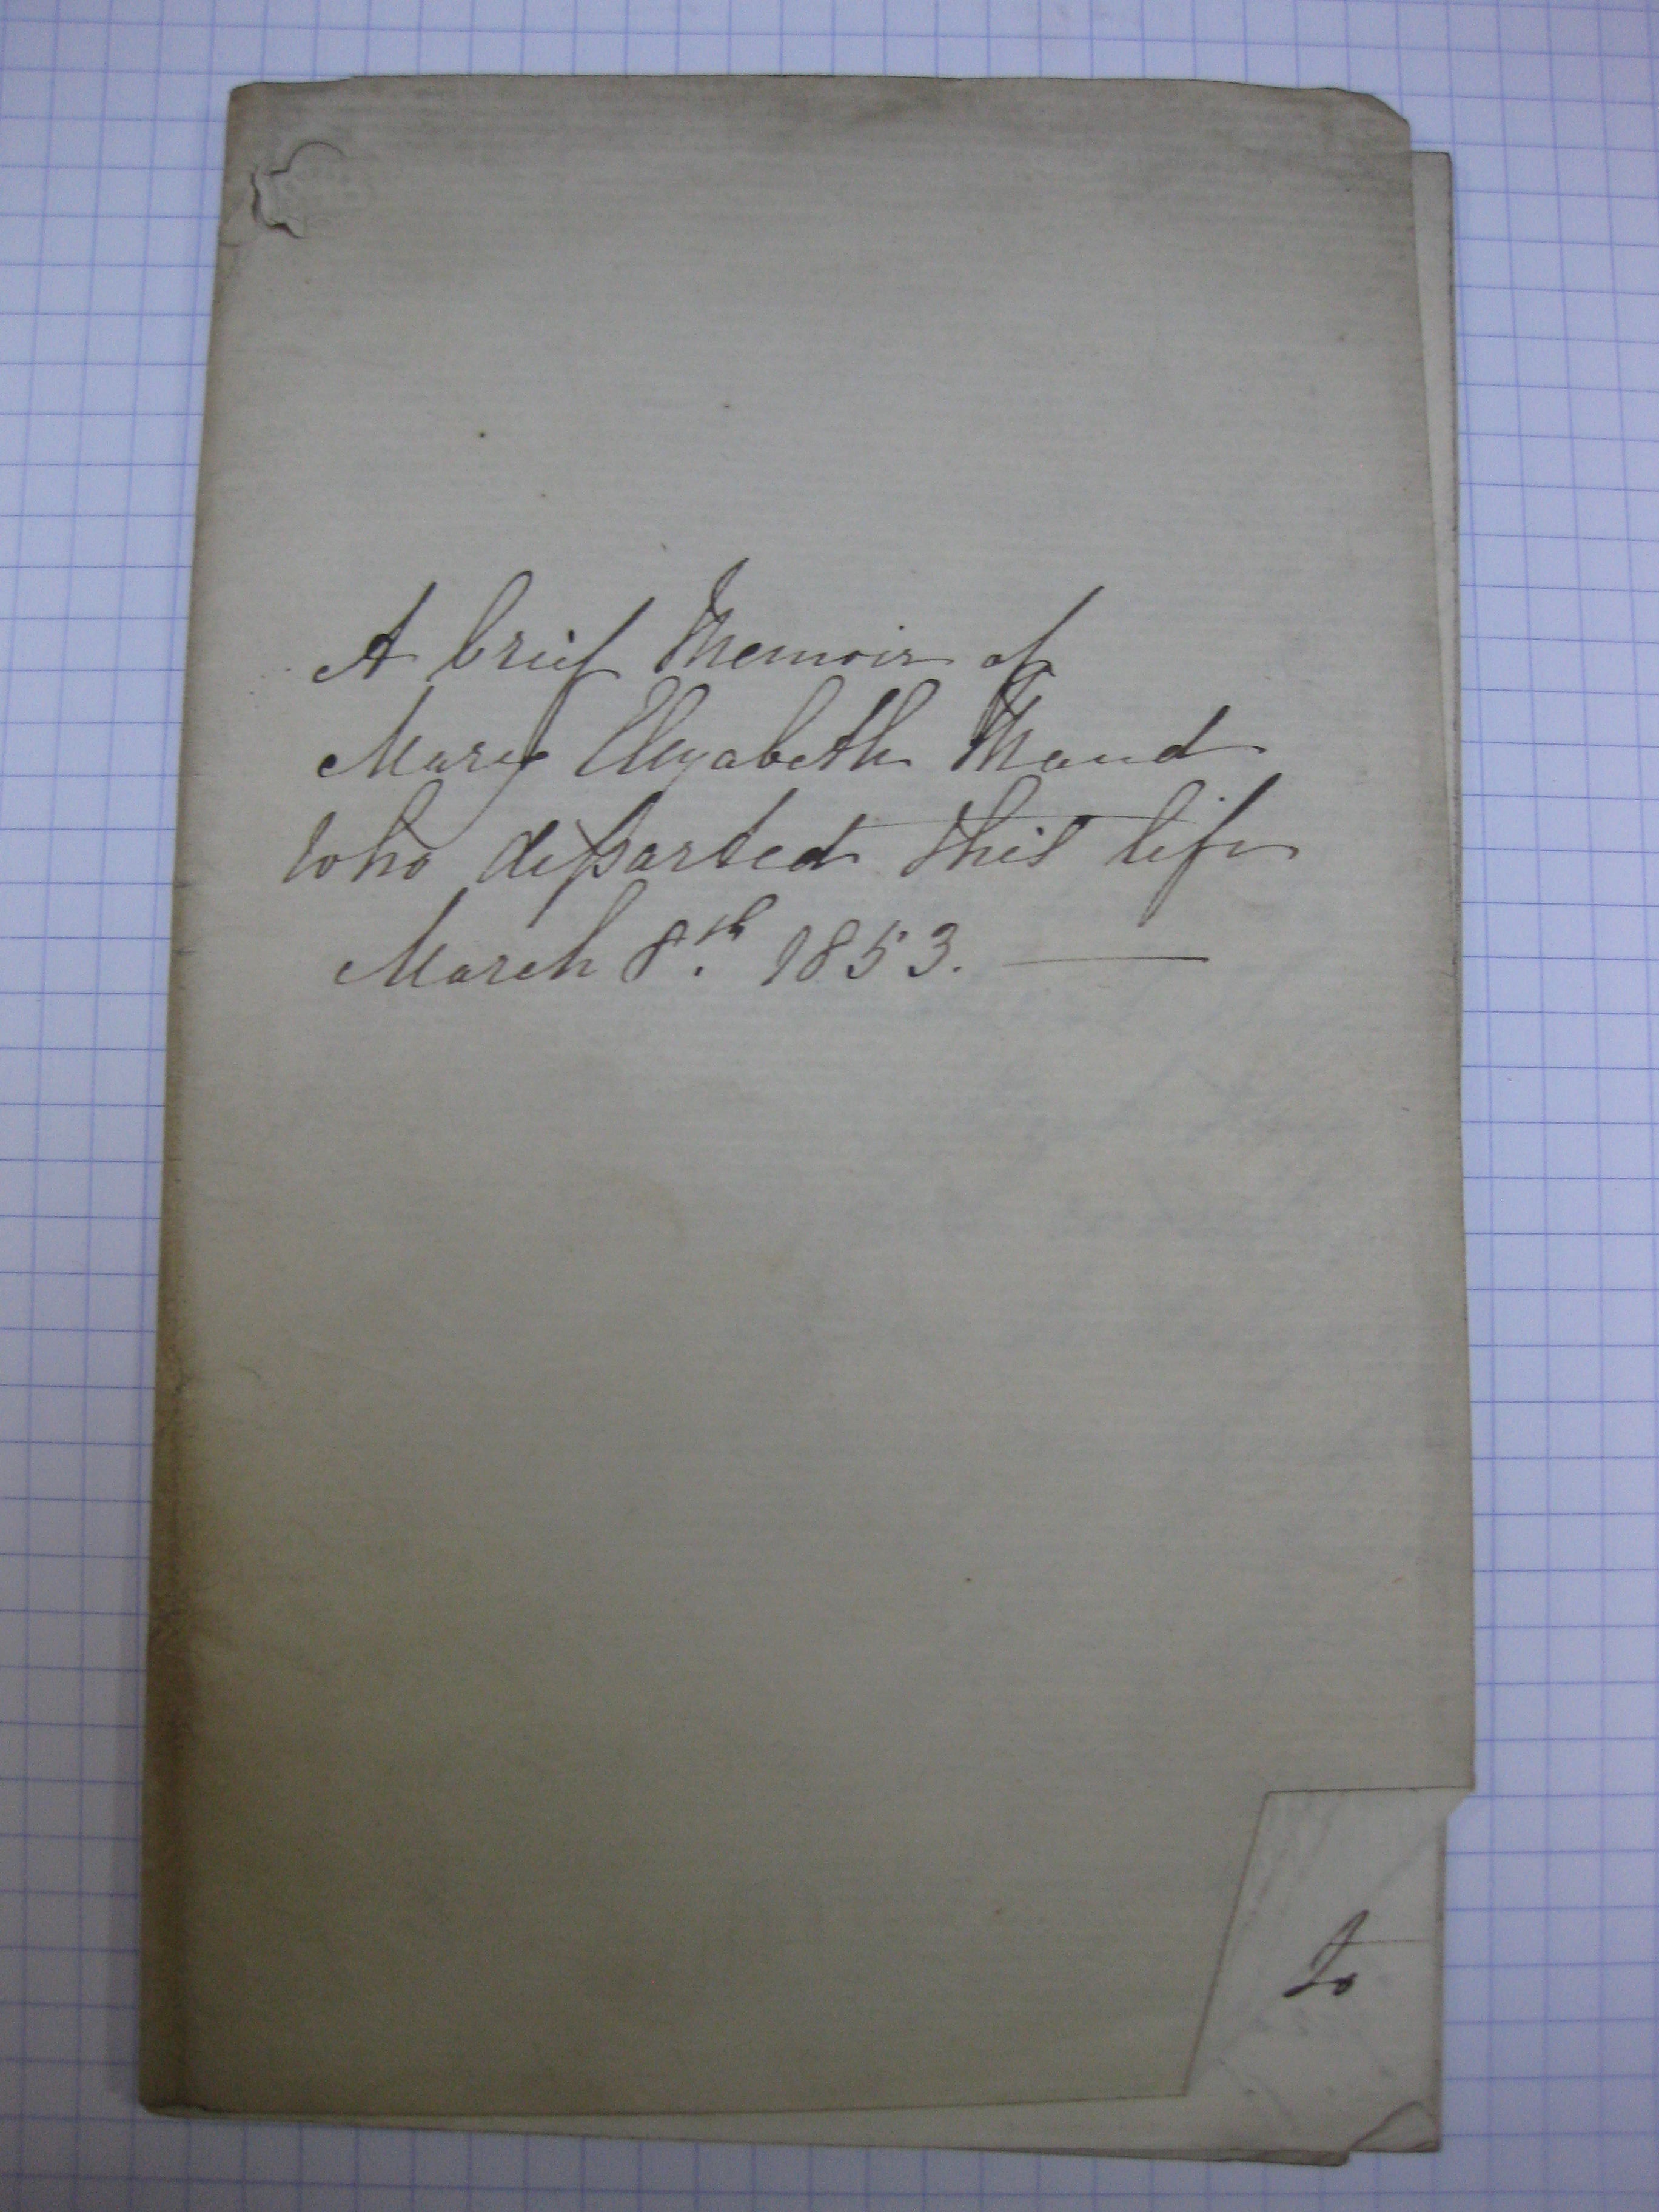 A brief Memoir of
Mary Elizabeth Maud
who departed this life
March 8th. 1853. —
to